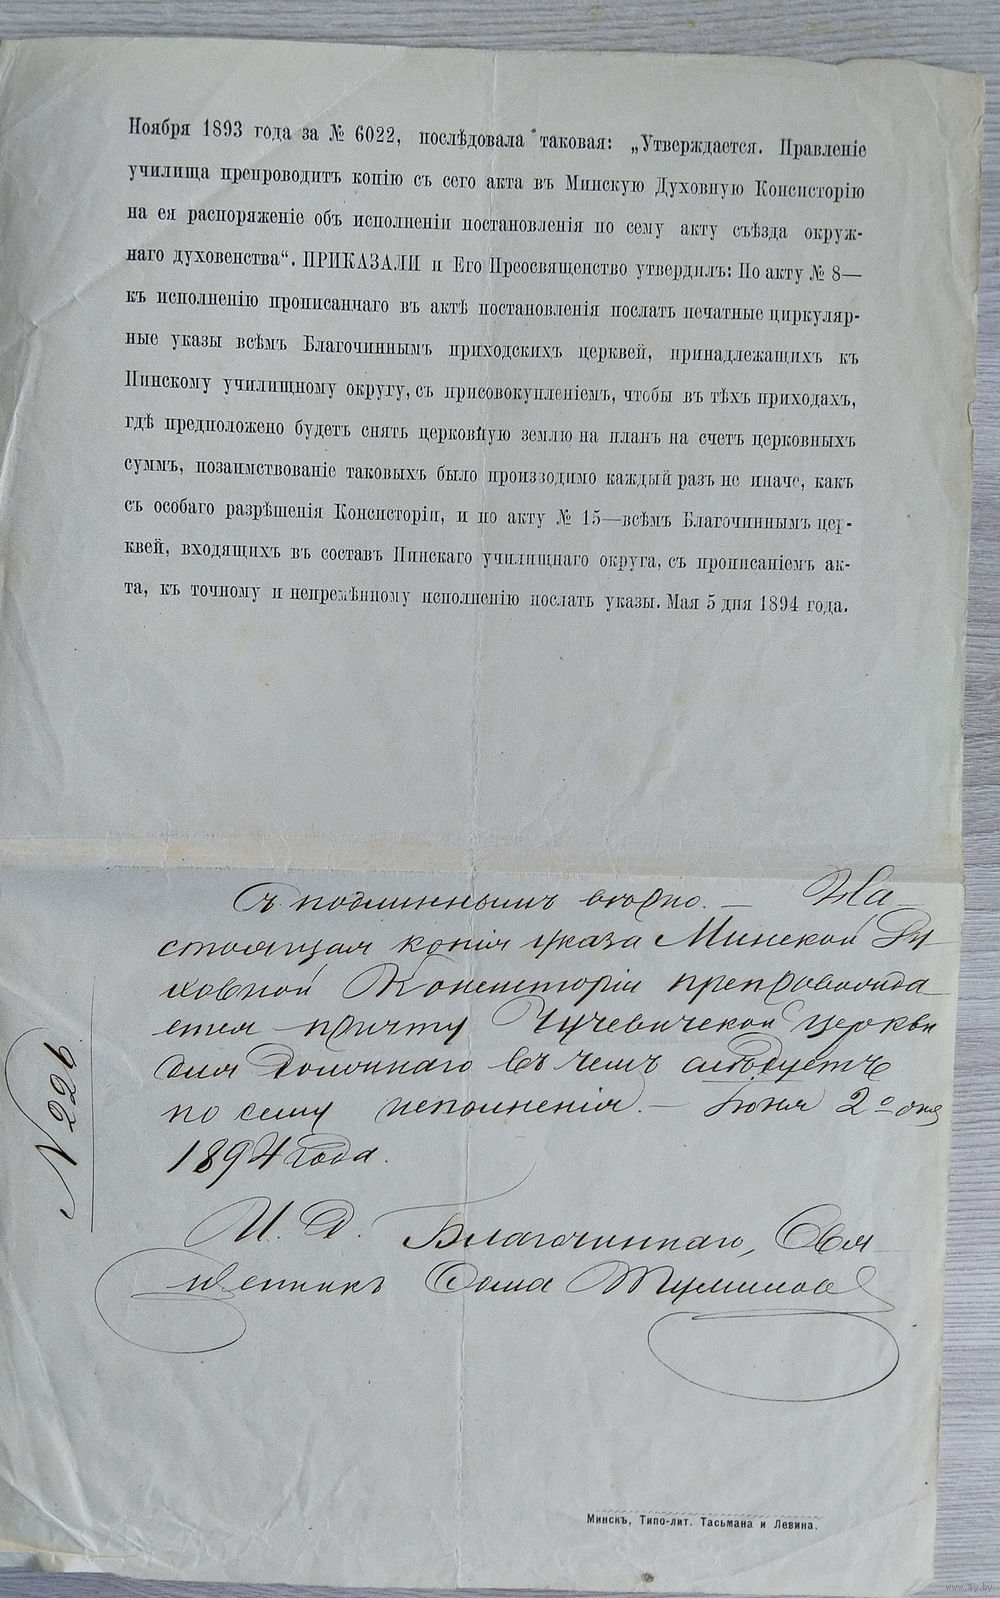 Ноября 1893 года за № 6022, послѣдовала таковая: „Утверждается. Правленіе
училища препроводитъ копію съ сего акта въ Минскую Духовную Консисторію
на ея распоряженіе объ исполненіи постановленія по сему акту съѣзда окруж-
наго духовенства“. ПРИКАЗАЛИ и Его Преосвященство утвердилъ: По акту № 8—
къ исполненію прописаннаго въ актѣ постановленія послать печатные циркуляр-
ные указы всѣмъ Благочиннымъ приходскихъ церквей, принадлежащихъ къ
Пинскому училищному округу, съ присовокупленіемъ, чтобы въ тѣхъ приходахъ,
гдѣ предположено будетъ снять церковную землю на планъ на счетъ церковныхъ
суммъ, позаимствованіе таковыхъ было производимо каждый разъ не иначе, какъ
съ особаго разрѣшенія Консисторіи, и по акту № 15—всѣмъ Благочиннымъ цер-
квей, входящихъ въ составъ Пинскаго училищнаго округа, съ прописаніемъ ак-
та, къ точному и непремѣнному исполненію послать указы. Мая 5 дня 1894 года.
Съ подлиннымъ вѣрно. — На-
стоящая копія указа Минской Ду-
ховной Консисторіи препровожда-
ется причту Чучевичской церкви
для должнаго въ чемъ слѣдуетъ
по сему исполненія. — Іюня 2 го дня
1894 года.
И. Д. Благочиннаго, Свя-
щенникъ Ѳома
№ 226
Минскъ, Типо-лит. Тасьмана и Левина.
www.ay.by